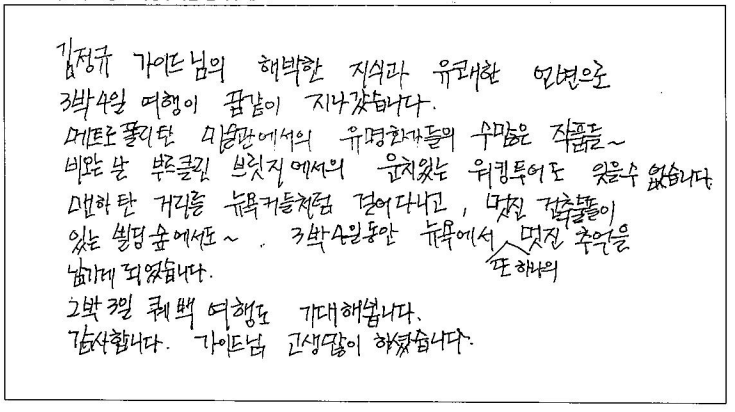 김정규 가이드님의 해박한 지식과 유쾌한 언변으로
3박4일 여행이 꿈같이 지나갔습니다.
메트로폴리탄 미술관에서의 유명화가들의 수많은 작품들~
비오는날 부르클린 브릿지에서의 운치있는 워킹투어도 잊을수 없습니다.
맨하탄 거리를 뉴욕커들처럼 걸어다니고, 멋진 건축물들이
있는 빌딩 숲에서도~. 3박4일동안 뉴욕에서 멋진 추억을
또 하나의
남기게 되었습니다.
2박3일 퀘벡 여행도 기대해봅니다.
감사합니다. 가이드님 고생많이 하셨습니다.